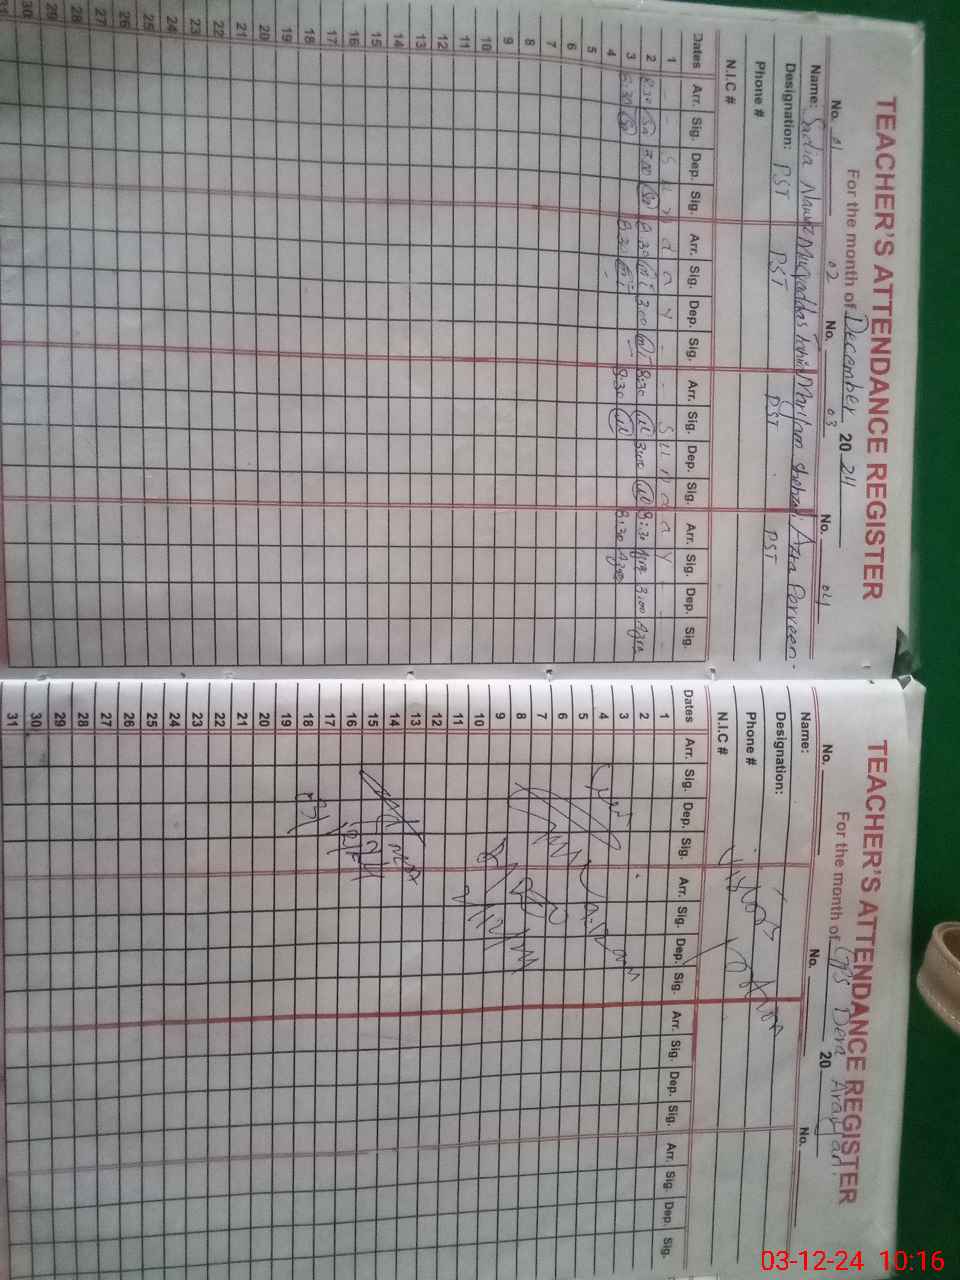 TEACHER'S ATTENDANCE REGISTER
For the month of December 20 24
No. 01 02 No. 03 No. 04
Name: Sadia Muqaddas Mariam Shehzadi Azra Perveen
Designation: PST PST PST PST
Phone #
N.I.C #
Dates Arr. Sig. Dep. Sig. Arr. Sig. Dep. Sig. Arr. Sig. Dep. Sig. Arr. Sig. Dep. Sig.
1 - - S u n d a y - - S u n d a y - -
2 8:30 Sa 3:00 Sa 8:30 3:00 8:30 3:00 8:30 Azra 3:00 Azra
3 8:30 Sa 8:30 8:30 8:30 Azra
4
5
6
7
8
9
10
11
12
13
14
15
16
17
18
19
20
21
22
23
24
25
26
27
28
29
30
31
TEACHER'S ATTENDANCE REGISTER
For the month of GPS Dera Arayian 20
No. No. No.
Name:
Designation:
Phone #
N.I.C #
Dates Arr. Sig. Dep. Sig. Arr. Sig. Dep. Sig. Arr. Sig. Dep. Sig. Arr. Sig. Dep. Sig.
1
2
3
4
5
6
7
8
9
10
11
12
13
14
15
16
17
18
19
20
21
22
23
24
25
26
27
28
29
30
31
03-12-24 10:16